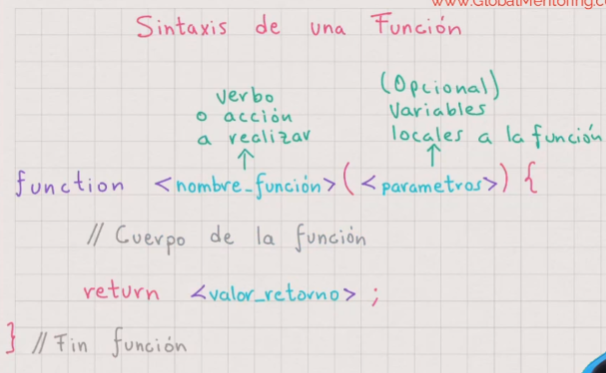 www.GlobalMentoring.c
Sintaxis de una Función
verbo
o acción
a realizar
(Opcional)
Variables
locales a la función
function <nombre_función>(<parametros>) {
// Cuerpo de la función
return <valor_retorno> ;
} // Fin función